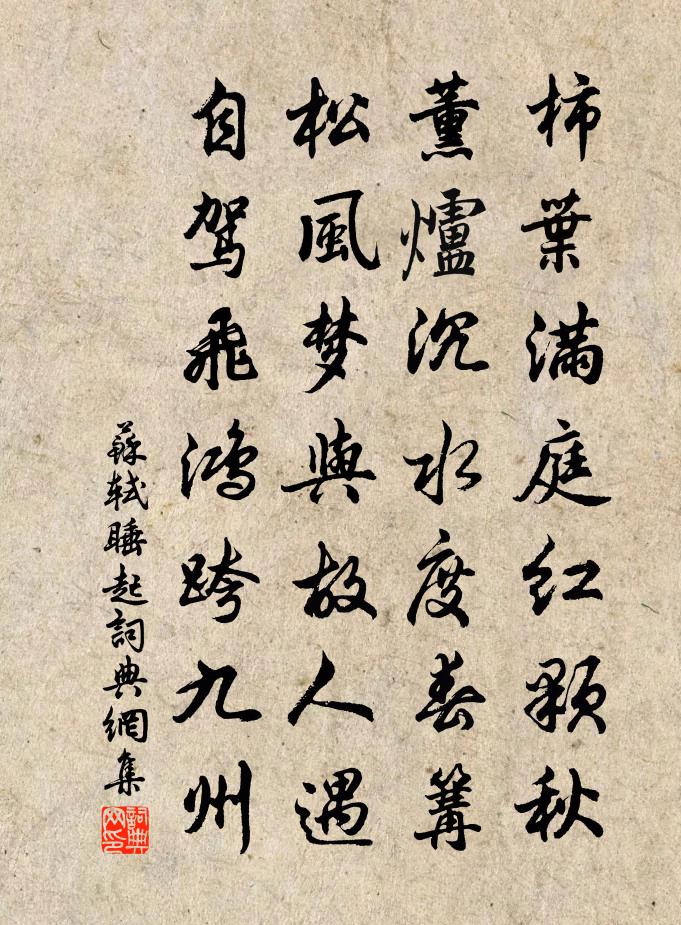 柿葉滿庭紅顆秋
薰爐沉水度春篝
松風梦與故人遇
自駕飛鴻跨九州
蘇軾睡起詞典網集
詞典网印